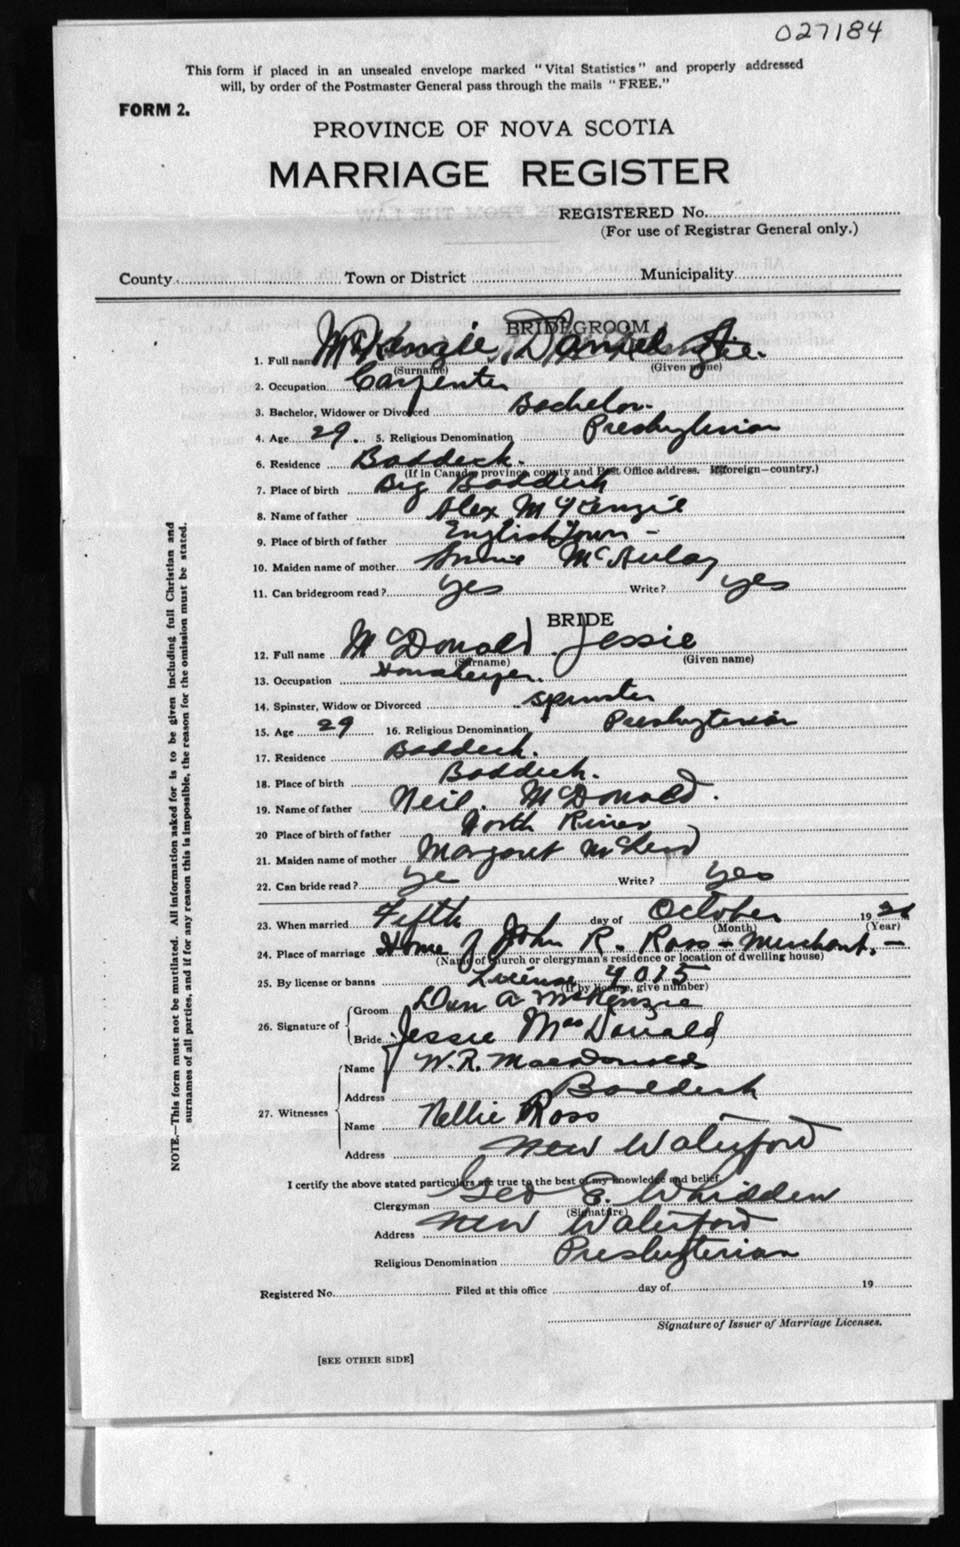 027184
This form if placed in an unsealed envelope marked "Vital Statistics" and properly addressed
will, by order of the Postmaster General pass through the mails "FREE."
FORM 2.
PROVINCE OF NOVA SCOTIA
MARRIAGE REGISTER
REGISTERED No.
(For use of Registrar General only.)
County Town or District Municipality
BRIDEGROOM
1. Full name McKenzie, Daniel
(Surname) (Given name)
2. Occupation Carpenter
3. Bachelor, Widower or Divorced Bachelor
4. Age 29. 5. Religious Denomination Presbyterian
6. Residence Baddeck.
(If in Canada, province, county and Post Office address. If foreign—country.)
7. Place of birth Big Baddeck
8. Name of father Alex McKenzie
9. Place of birth of father English Town -
10. Maiden name of mother Annie McAulay
11. Can bridegroom read? yes Write? yes
BRIDE
12. Full name McDonald Jessie
(Surname) (Given name)
13. Occupation
14. Spinster, Widow or Divorced Spinster
15. Age 29 16. Religious Denomination Presbyterian
17. Residence Baddeck.
18. Place of birth Baddeck.
19. Name of father Neil. McDonald.
20 Place of birth of father North River
21. Maiden name of mother Margaret McLeod
22. Can bride read? ye Write? yes
23. When married Fifth day of October 19
(Month) (Year)
24. Place of marriage Home of John R. Ross - Merchant. -
(Name of church or clergyman's residence or location of dwelling house)
25. By license or banns License 4015
(If by license, give number)
26. Signature of
Groom Dan A McKenzie
Bride Jessie MacDonald
27. Witnesses
Name W.R. MacDonald
Address Baddeck
Name Nellie Ross
Address New Waterford
I certify the above stated particulars are true to the best of my knowledge and belief.
Clergyman Geo E. Whidden
(Signature)
Address New Waterford
Religious Denomination Presbyterian
Registered No. Filed at this office day of 19
Signature of Issuer of Marriage Licenses.
[SEE OTHER SIDE]
NOTE.—This form must not be mutilated. All information asked for is to be given including full Christian and
surnames of all parties, and if for any reason this is impossible, the reason for the omission must be stated.